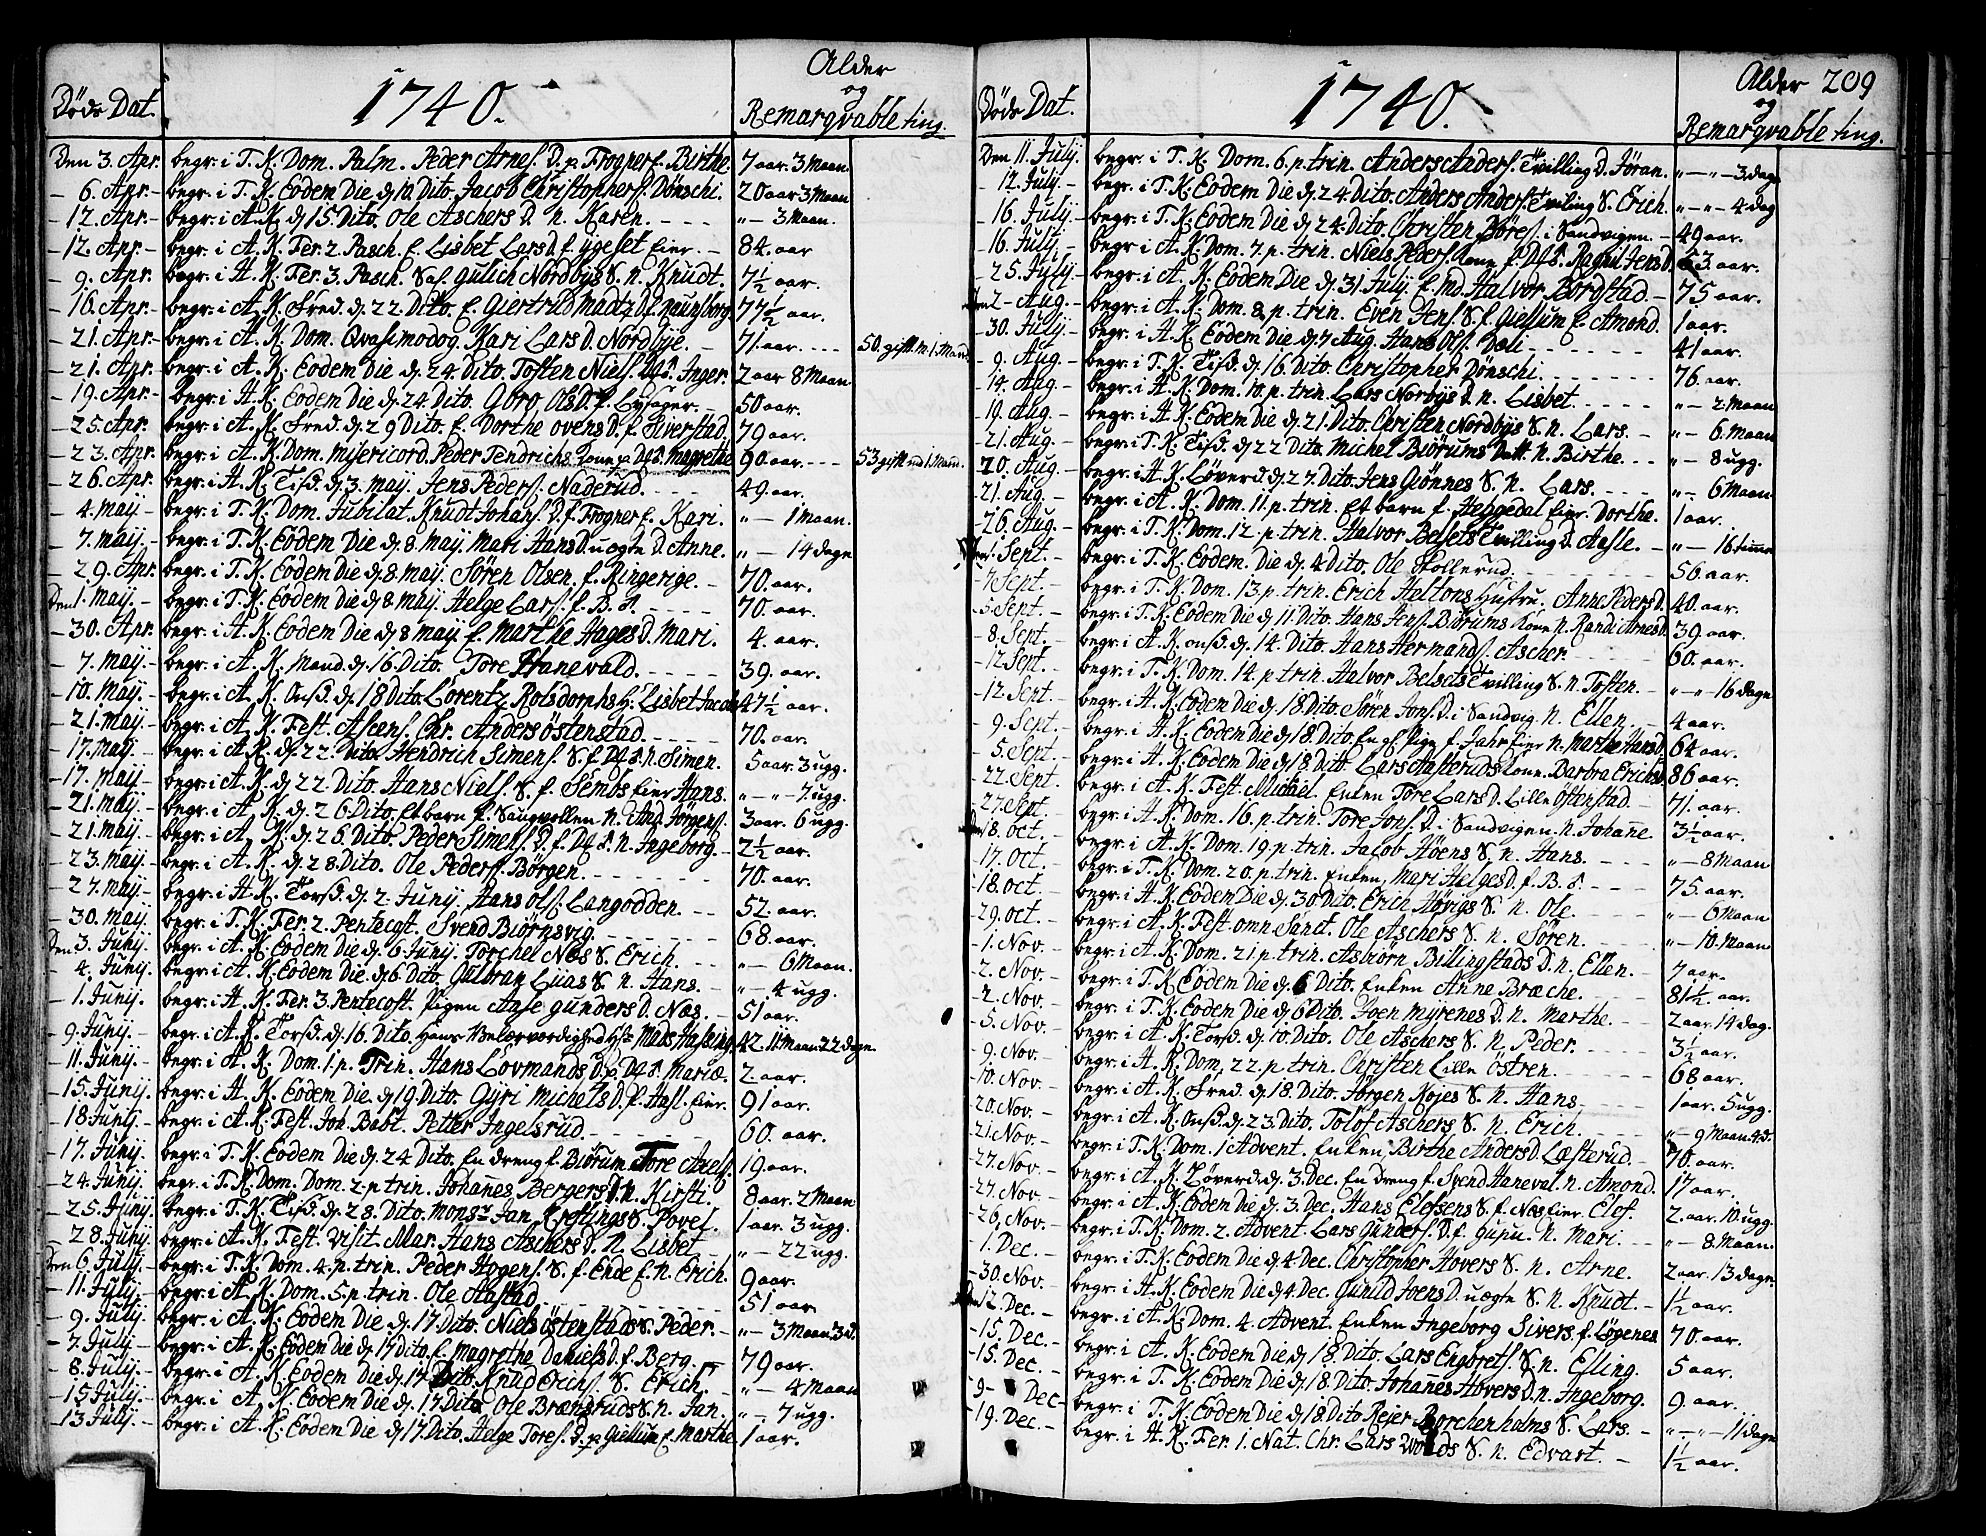 Døds Dat. 1740. Alder og Remarqvable ting.
Den 3. Apr. begr. i T. K. Dom. Palm. Peder Arnes. D. p Frogner f. Birthe. 7 aar 3 Maan
- 6. Apr. - begr. i T. K. Eodem Die d. 10. Dito. Jacob Christophers. Dønschi. 20 aar 3 Maan
- 12. Apr. - begr. i A. K. d. 15. Dito. Ole Aschers D. n. Karen. " - 3 Maan.
- 12. Apr. - begr. i A. K. Fer. 2. Pasch. f. Lisbet Lars D. f. Eier. - 84. aar
- 9. Apr. begr. i H. K. Fer. 3. Pasch. Sal. Gulich Nordbys S. n. Knudt. 7 1/2 aar.
- 16. Apr. begr. i A. K. Fred. d. 22. Dito. f. Giertrud D. f. 77 1/2 aar.
- 21. Apr. - begr. i A. K. Dom. Qvasimodog. Kari Lars D. Nordbye. - 71. aar. - - - 50. gift. m. 1. Mand.
- 21. Apr. begr. i A. K. Eodem Die d. 24. Dito. Tosten Niels. Inger. 2 aar 8 Maan
- 19. Apr. - begr. i H. K. Eodem Die d. 24. Dito. Goro Ols D. f. Lysager. - 50 aar.
- 25. Apr. begr. i A. K. Fred. d. 29 Dito. f. Dorthe ovens D. f. Siverstad 79 aar.
- 23. Apr. begr. i A. K. Dom. Misericord. Peder Hendrichs. Kone Magrethe 90 aar. - - - 53 gift md 1. Mam.
- 26. Apr. begr. i H. K. Tisd. d. 3. May. Jens Peders. Naderud. 49. aar.
- 4. May - begr. i T. K. Dom. Jubilat. Knudt Johans. D. f. Frogner f. Kari. " - 1 Maan.
- 7. May. - begr. i T. K. Eodem Die d. 8. May. Mari Hans D. uægte D. Anne. " - 14 dage
- 29. Apr. begr. i T. K. Eodem Die d. 8. May. Søren Olsen. f. Ringerige. - 70. aar.
Den 1. May. - begr. i T. K. Eodem Die d. 8 May Helge Lars. f. B. S. 70. aar.
- 30. Apr. begr. i A. K. Eodem Die d. 8 May f. Marthe Hages D. Mari. 4. aar.
- 7. May. - begr. i A. K. Mand. d. 16. Dito. Tore Hanevald. 39. aar.
- 10. May. - begr. i A. K. Onsd. d. 18 Dito. Lorentz Rolsdorphs H. Lisbet Jacobs 47 1/2 aar.
- 21. May. begr. i A. K. Fest. Ascens. Chr. Anders Østenstad. 70. aar.
- 17. May - begr. i A. K. d. 22. Dito Hendrich Simens. S. n. Simen. 5 aar. 3 ugg.
- 17. May - begr. i A. K. d. 22 Dito. Hans Niels. S. f. Sembs Eier Hans. " - " - 7. ugg.
- 21. May begr. i A. K. d. 26 Dito. Et barn f. Sangvollen n. And. Jørgens. 3 aar. 6 ugg.
- 21. May. begr. i A. K. d. 26 Dito. Peder Simens. D. n. Ingeborg. - 2 1/2 aar.
- 23. May. begr. i A. K. d. 28. Dito. Ole Peders. Børgen. 70. aar.
- 27. May. - begr. i H. K. Torsd. d. 2. Juny. Hans Ols. Langodden. - - 52. aar.
- 30. May. begr. i T. K. Fer. 2. Pentecost. Svend Biørnsvig. 68. aar.
Den 3. Junij. begr. i A. K. Eodem Die d. 6 Juny. Torchel Næs S. Erich. " - 6 Maan.
- 4. Junij. begr. i A. K. Eodem Die. d. 6. Dito. Gulbran Luas S. n. Hans. - " - 4 ugg.
- 1. Junij. begr. i H. K. Fer. 3. Pentecost. Pigen Aase Gunders D. Næs. - - 51 aar.
- 9. Junij. - begr. i A. K. Torsd. d. 16. Dito. Hans Velærværdighed Hr. Mads Hassing. 42. 11 Maan 22 dage.
- 11. Juny. - begr. i A. K. Dom. 1. p. Trin. Hans Lovmands D. p. Mariæ. 2. aar.
- 15. Junij. begr. i H. K. Eodem Die d. 19. Dito. Gyri Michels D. f. Hasl. Eier. 91 aar.
- 18 Junij. - begr. i A. K. Fest. Joh. Babt. Petter Ingelsrud. 60. aar.
- 17. Junij. begr. i T. K. Eodem Die d. 24 Dito. En dreng f. Biørum Tore Axels. 19. aar.
- 24. Junij. begr. i T. K. Dom. Dom. 2. p trin. Johannes Bergers D. n. Kirsti. 8 aar. 2 Maan
- 25. Junij. begr. i T. K. Tisd. d. 28. Dito. Monsr. Jan Crestings S. Povel. 1 aar. 3 ugg.
- 28. Junij. begr. i A. K. Fest. Visit. Mar. Hans Aschers D. n. Lisbet. - " - 22 ugg.
Den 6. Julij. - begr. i T. K. Dom. 4. p. trin. Peder Hogens. S. f. Ende f. n. Erich. 9 aar.
- 11. Julij. - begr. i A. K. Dom. 5. p. trin. Ole Aastad. 51 aar.
- 9. Julij. - begr. i A. K. Eodem Die d. 17 Dito. Niels Østenstads S. Peder. - " - 3 Maan 3 d.
- 7. Julij - begr. i A. K. Eodem Die d. 17 Dito. f. Magrethe Daniels D. f. Berg. - 79 aar.
- 8. Julij - begr. i A. K. Eodem Die d. 17 Dito. Knud Erichs. S. Erich. - " - 4 Maan
- 15 Julij - begr. i A. K. Eodem Die d. 17. Dito Ole Brænsruds S. n. Jan. " - 7 ugg.
- 13. Julij. - begr. i A. K. Eodem Die d. 17. Dito. Helge Tores. D. p Giellum f. Marthe 1 aar.
Døds Dat. 1740. Alder og Remarqvable ting. 209
Den 11. Julij. begr. i T. K. Dom. 6. p. trin. Anders Anders. Tvilling D. Jøran. " - " - 3 dage
- 12. Julij. - begr. i T. K. Eodem Die d. 24. Dito. Anders Anders. Tvilling S. Erich. " - " - 4 dag
- 16. Julij. begr. i T. K. Eodem Die d. 24. Dito. Christen Børes. i Sandvigen. - 49 aar.
- 16. Julij. - begr. i A. K. Dom. 7. p. trin. Niels Peders. Kone Ragnil Jens D. 63. aar.
- 25. Julij - begr. i A. K. Eodem Die d. 31 Julij. f. Md. Halvor Borgstad. - 75 aar.
Den 2 - Aug. - begr. i A. K. Dom. 8. p. trin. Even Jens. S. f. Giellum f. Amond. 1 aar.
- 30. Julij - begr. i H. K. Eodem Die d. 7 Aug. Hans Ols. Dæli 41 aar.
- 9. Aug. - begr. i T. K. Tisd. d. 16. Dito Christopher Dønschi. 76. aar.
- 14. Aug. - begr. i H. K. Dom. 10. p. trin. Lars Norbys D. n. Lisbet. " - 2 Maan
- 19. Aug. - begr. i H. K. Eodem Die d. 21. Dito. Christen Nordbys S. n. Lars. - " - 6. Maan
- 21. Aug. begr. i T. K. Tisd. d. 22 Dito. Michel Biørums Datt. n. Birthe. " - 8 ugg.
- 20. Aug. - begr. i H. K. Løverd. d. 27. Dito. Jens Glønnes S. n. Lars. " - 6 Maan
- 21. Aug. - begr. i A. K. Dom. 11. p. trin. Et barn f. Heggedal Eier. Dorthe. 1 aar.
- 26. Aug. begr. i T. K. Dom. 12. p. trin. Halvor Belsets Tvilling D. Aasle. - " - 16 timer
Den 1. Sept. begr. i T. K. Eodem. Die d. 4. Dito. Ole Follerud. 56. aar.
- 4 Sept. - begr. i T. K. Dom. 13. p. trin. Erich Heltons Hustru. Anne Peders D. 40. aar.
- 5. Sept. - begr. i T. K. Eodem Die d. 11. Dito. Hans Jens. Biørums Kone n. Randi Arnes D. 39. aar.
- 8. Sept. - begr. i A. K. Onsd. d. 14. Dito. Hans Hermands. Ascher. 60. aar.
- 12 Sept. - begr. i T. K. Dom. 14. p. trin. Halvor Belsets Tvilling S. n. Tosten. - " - " 16 dage
- 12. Sept. begr. i H. K. Eodem Die d. 18. Dito. Søren Jons. D. i Sandvig. n. Ellen. - 4 aar.
- 9. Sept. - begr. i H. K. Eodem Die d. 18. Dito. En Pige f. Eier n. Marthe Hans D. 64 aar.
- 5. Sept. begr. i H. K. Eodem Die d. 18 Dito. Lars Aasteruds Kone. Barbra Erichs. 86 aar.
- 22 Sept. - begr. i A. K. Fest. Michael. Enken Tore Lars D. Lille Østenstad. - 71. aar.
- 27. Sept begr. i H. K. Dom. 16. p. trin. Tore Jons. D. i Sandvigen. n. Johanne 3 1/2 aar.
Den 8. Oct. begr. i A. K. Dom. 19. p. trin. Jacob Høens S. n. Hans. " - 8 Maan
- 17. Oct. begr. i T. K. Dom. 20. p. trin. Enken, Mari Helges D. f. B. S. 75. aar.
- 18. Oct. begr. i H. K. Eodem Die d. 30 Dito. Erich Høvigs S. n. Ole. " - 6 Maan
- 29. Oct. - begr. i A. K. Fest. omn. Sanct. Ole Aschers S. n. Søren. " - 10. Maan
- 1. Nov. begr. i A. K. Dom. 21. p. trin. Asbiørn Billingstads D. n. Ellen. - 7 aar.
- 2. Nov. - begr. i T. K. Eodem Die d. 6 Dito. Enken Anne Bræche. 81 1/2 aar.
- 2. Nov. begr. i T. K. Eodem Die d. 6 Dito. Joen Myrenes D. n. Marthe. 2 aar. 14 dag.
- 5. Nov. - begr. i A. K. Torsd. d. 10. Dito. Ole Aschers S. n. Peder. 3 1/2 aar.
- 9. Nov. begr. i A. K. Dom. 22. p. trin. Christen Lille Østren. 68 aar.
- 10. Nov. - begr. i A. K. Fred. d. 18. Dito. Jørgen Kojes S. n. Hans. 1 aar. 5 ugg.
- 20. Nov. - begr. i A. K. Onsd. d. 23. Dito. Tolof Aschers S. n. Erich. " - 9 Maan 4 d.
- 21. Nov. - begr. i T. K. Dom. 1 Advent. Enken, Birthe Anders D. Læsterud. - 70. aar.
- 27. Nov. begr. i A. K. Løverd. d. 3. Dec. En Dreng f. Svend Haneval. n. Amond. 17 aar.
- 27. Nov - begr. i A. K. Eodem Die d. 3. Dec. Hans Elefsens S. f. Næs Eier. Elof. 2. aar. 10. ugg.
- 26. Nov. - begr. i T. K. Dom. 2. Advent. Lars Gunders. D. f. n. Mari. " - 8. Maan.
- 1. Dec. - begr. i T. K. Eodem Die d. 4 Dec. Christopher Hovers S. n. Arne. 2 aar. 13 dage
- 30. Nov. - begr. i H. K. Eodem Die d. 4 Dec. Gunild Joens D. uægte S. n. Knudt. - 1 1/2 aar.
Den 12. Dec. - begr. i A. K. Dom. 4. Advent. Enken Ingeborg Sivers. f. Løgenes 70. aar.
- 15. Dec. - begr. i A. K. Eodem Die d. 18. Dito. Lars Engbrets. S. n. Elling. 5 aar.
- 15. Dec. - begr. i T. K. Eodem Die d. 18. Dito. Johannes Hovers D. n. Ingeborg. 9. aar.
- 9 - Dec - begr. i T. K. Eodem Die d. 18 Dito Rejer Borchenholms S. Lars. - " - " - 11 dage
- 19. Dec. - begr. i H. K. Fer. 1. Nat. Chr. Lars Wolds S. n. Edvart. - 1 1/2 aar.